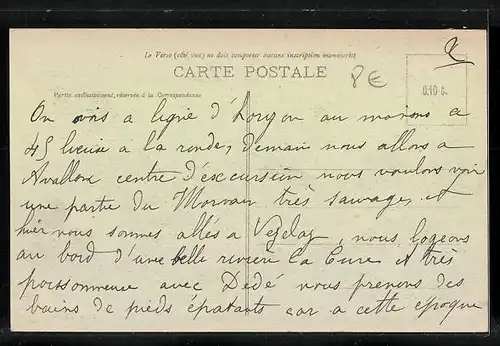 Le Verso (côté vue) ne doit comporter aucune inscription manuscrite
CARTE POSTALE
PE
0.10 c.
Partie exclusivement réservée à la Correspondance
On vois a ligne d'horyon au moins a
45 lieux a la ronde, demain nous allons a
Avallon centre d'excursion nous voulons voir
une partie du Morvan très sauvage, et
hier nous sommes allés a Vezelay, nous logeons
au bord d'une belle riviere la Cure et très
poissonneuse avec Dédé nous prenons des
bains de pieds épatants car a cette epoque